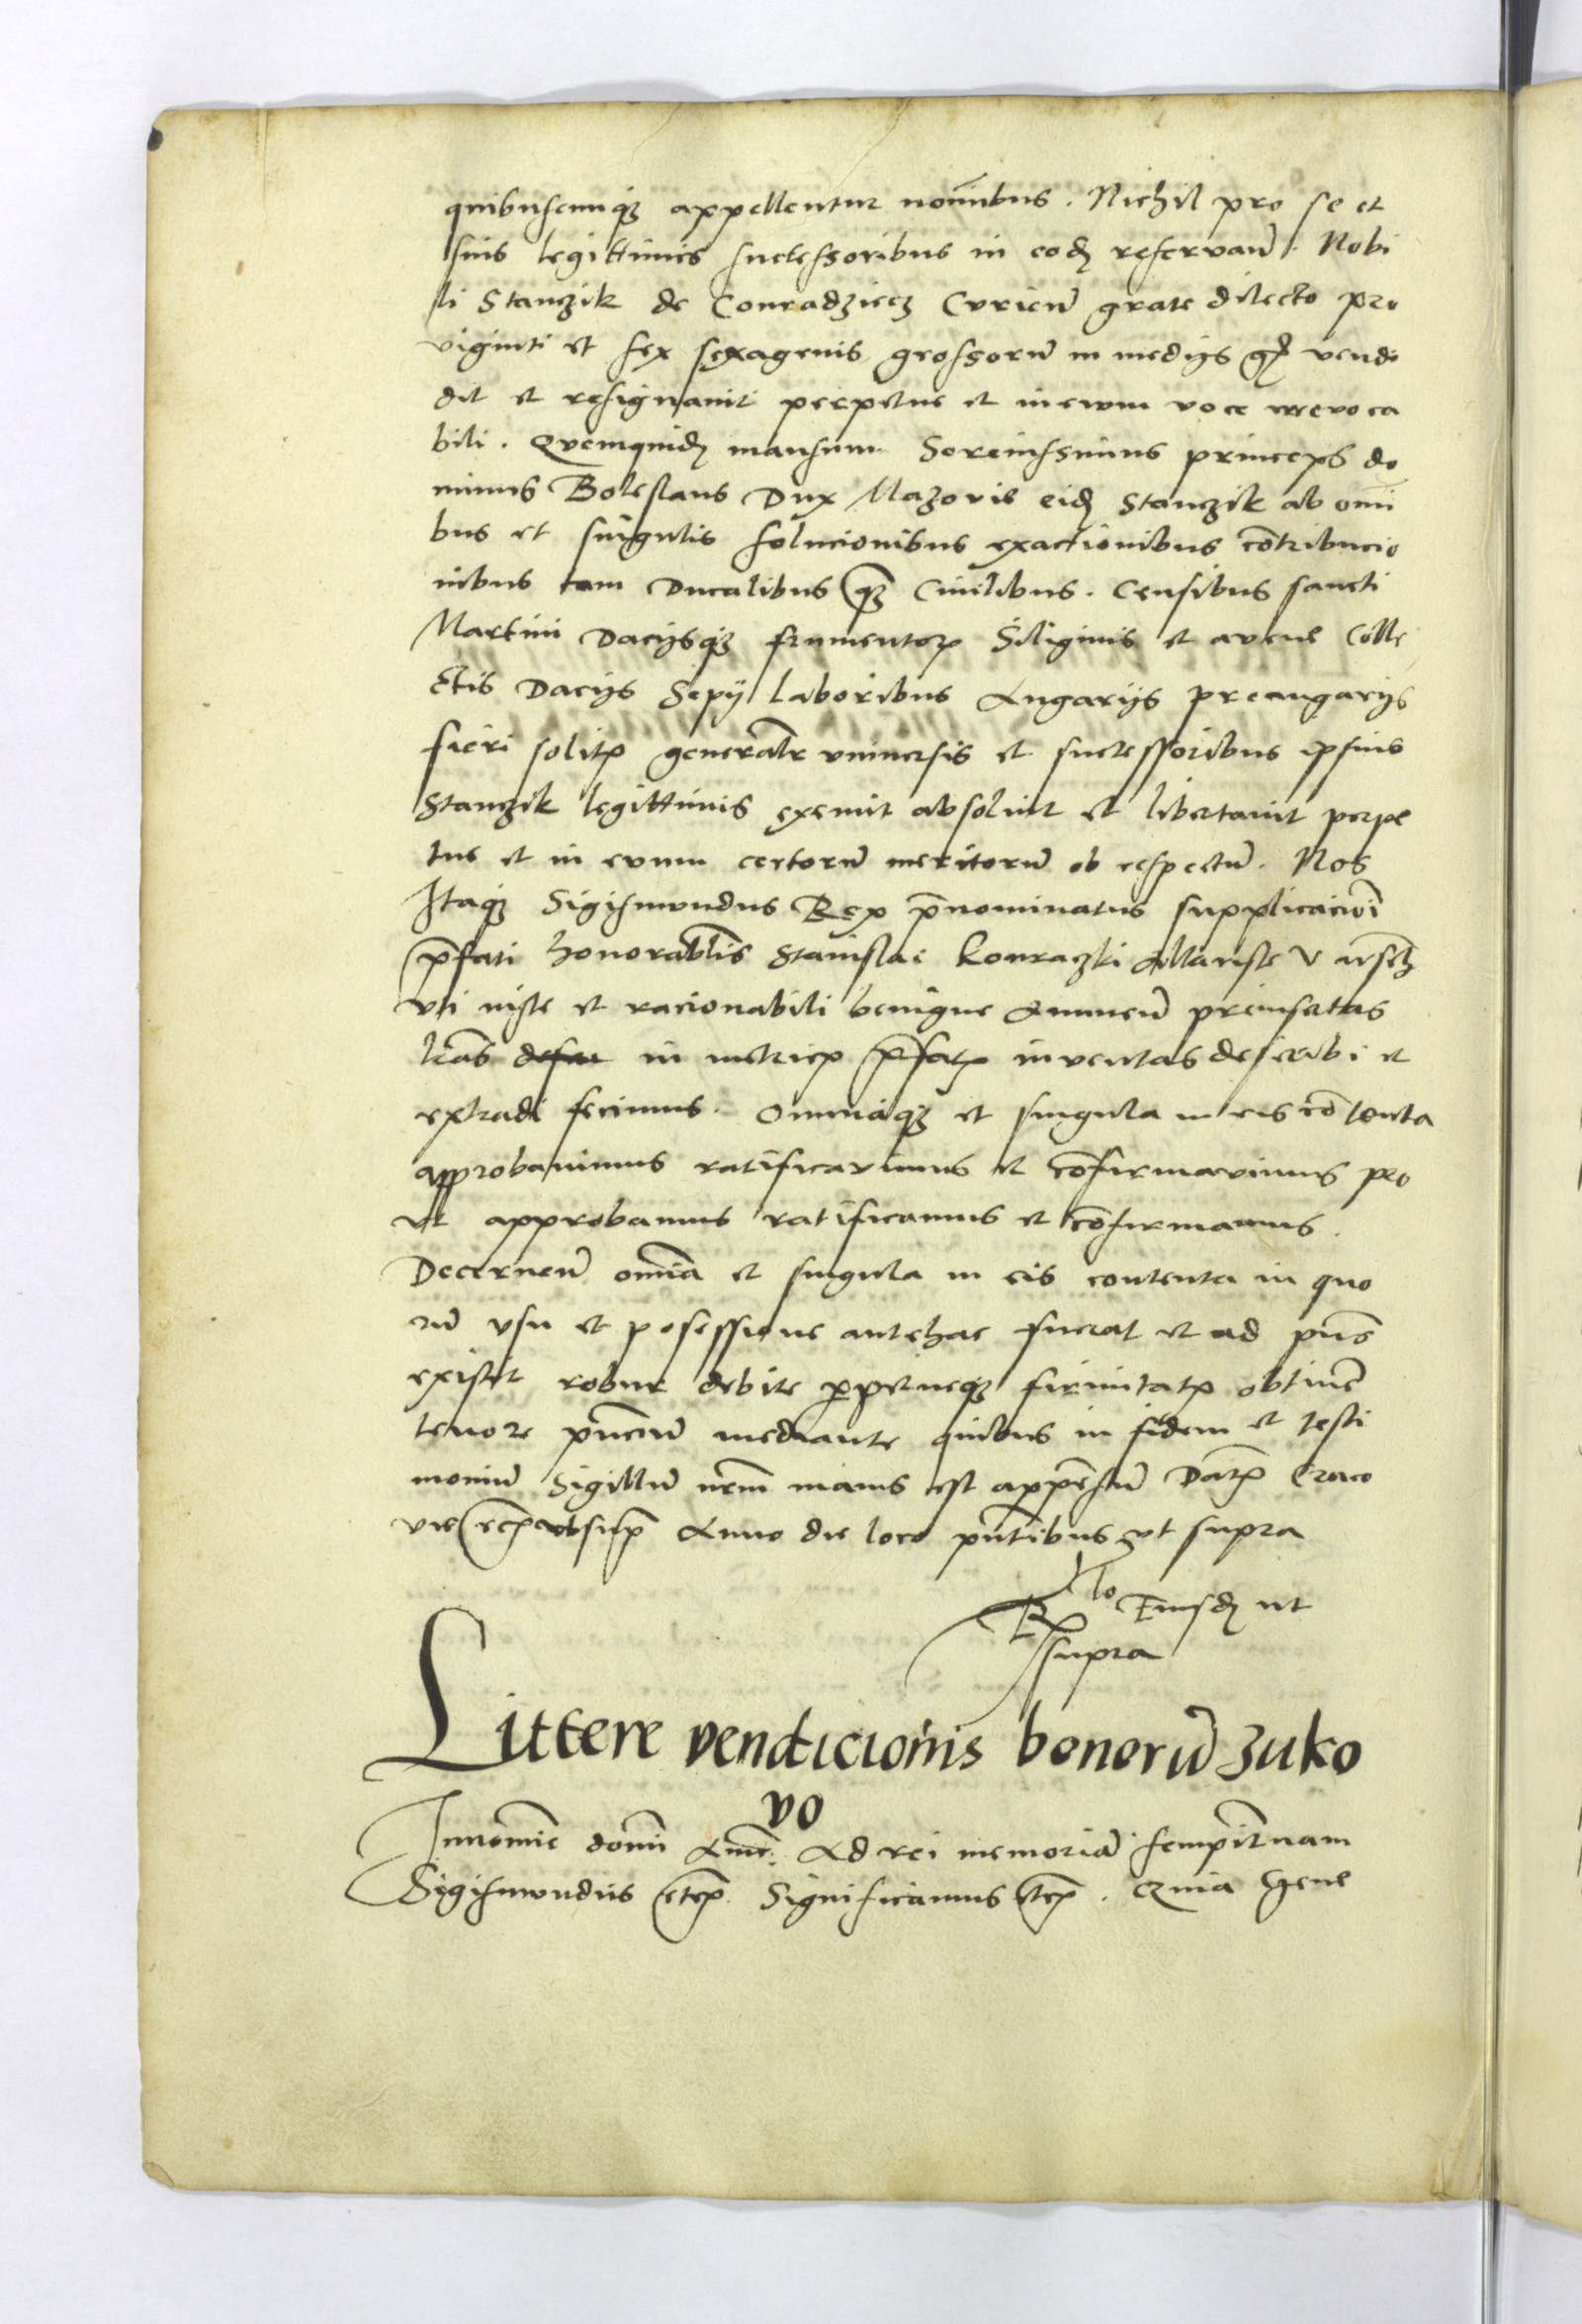 quibuscumq3 appellentur nominibus. Nichil pro se et
suis legittimis successoribus in eod reservan. Nobi
li Stanczik de Conradziecz Curien grate dilecto pro
viginti et sex sexagenis grossoru in medijs gr vendi
dit et resignavit perpetue et in evum voce irrevoca
bili. Quemquid mansum Serenissimus princeps do
minus Boleslaus Dux Mazovie eid Stanczik ab omni
bus et singulis solucionibus exactionibus cotribucio
nibus tam Ducalibus q3 Civilibus. Censibus sancti
Martini Dacijsq3 frumentor Siliginis et avene Colle
ctis Dacijs Sepij laboribus Angarijs preangarijs
fieri solit generalr universis et successoribus ipsius
Stanczik legittimis exemit absolvit et libertavit perpe
tue et in evum certoru meritoru ob respectu. Nos
Itaq3 Sigismundus Rex pnominatus supplicacioi
pfati honorablis Stanislai Konraczki
uti iuste et racionabili benigne Annuen preinsertas
lras in metric pfat inventas describi et
extradi fecimus. Omniaq3 et singula in eis cotenta
approbavimus ratificavimus et cofirmavimus pro
ut approbamus ratificamus et cofirmamus.
Decernen omia et singula in eis contenta in quo
ru usu et possessione antehac fuerat et ad pns
existit robur debite perpetueq3 firmitat obtinere
tenore pncium mediante quibus in fidem et testi
moniu Sigillu nrm maius est appensu Dat Craco
vie Anno die loco pntibus ut supra
Rlo Eiusd ut
supra
Littere vendicionis bonoru Zuko
vo
In nomie domi Ame. Ad rei memoria sempiternam
Sigismundus etc. Significamus etc. Quia Gene